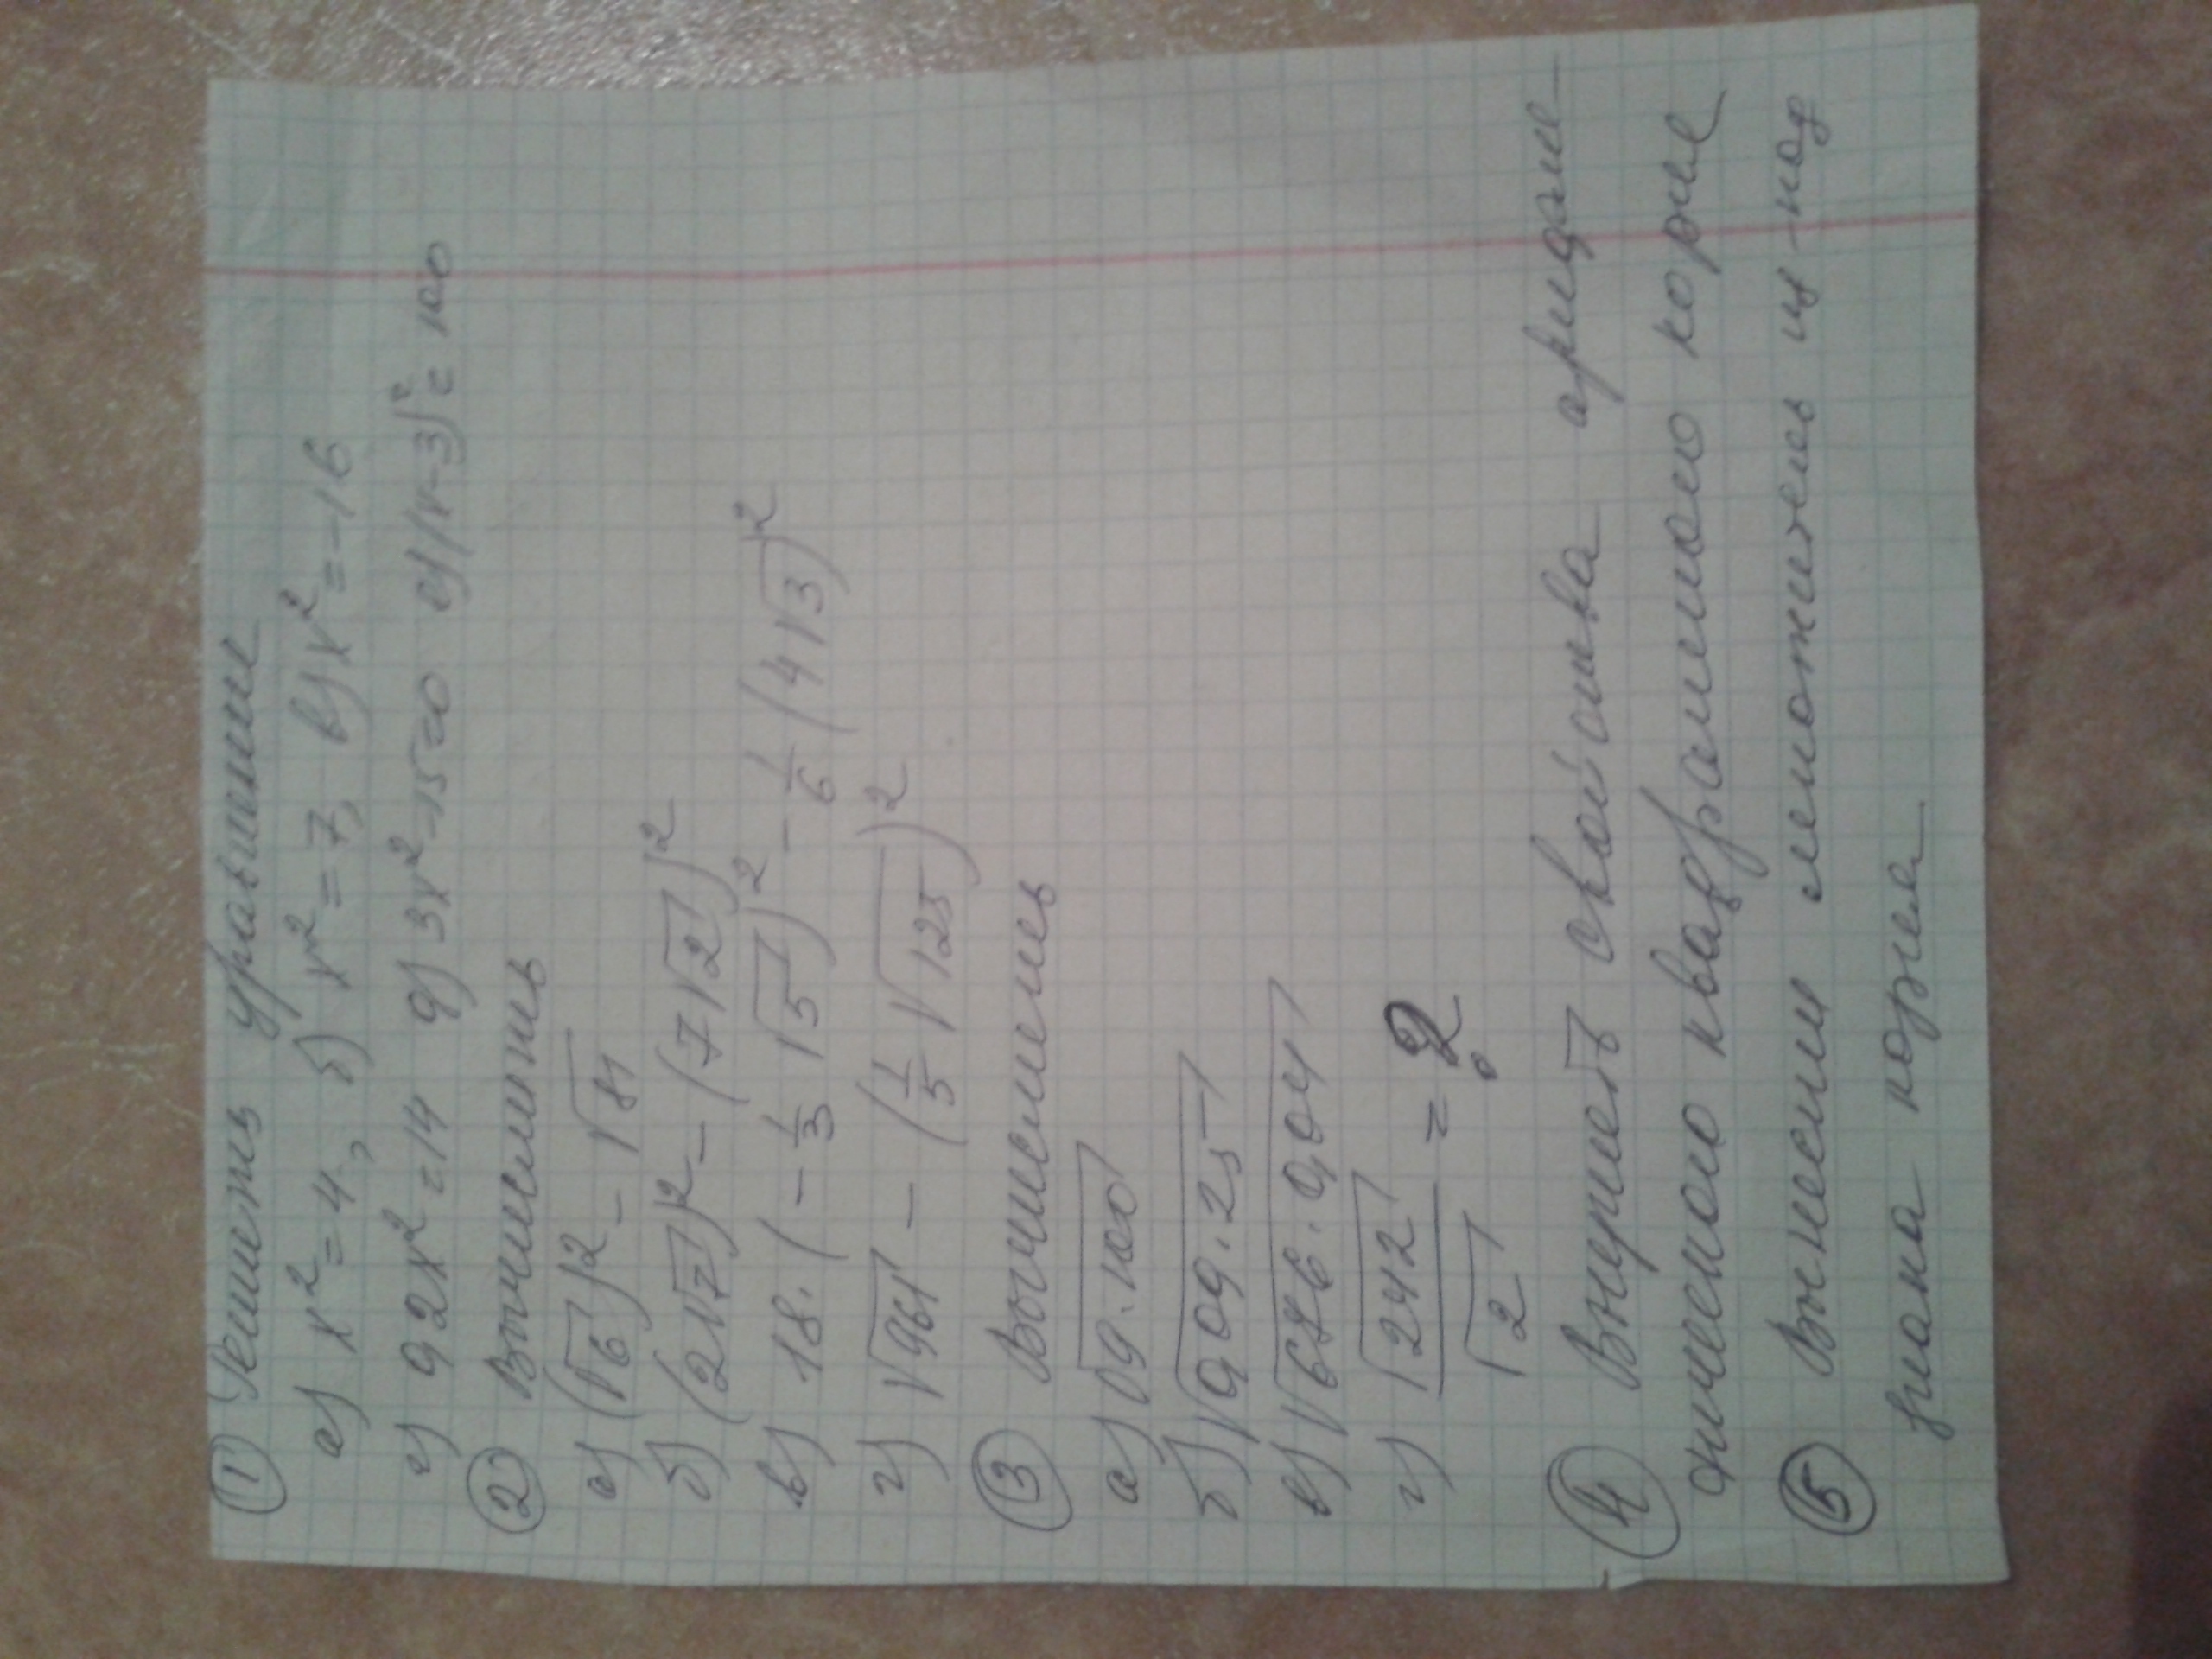 ① Решить уравнение
а) x² = 4, б) x² = 7, в) x² = -16
г) 9 2x² = 14 д) 3x² - 15 = 0 е) (x-3)² = 100
② Вычислить
а) (√6)² - √81
б) (2√7)² - (7√2)²
в) 18·(-1/3 √5)² - 1/6 (4√3)²
г) √961 - (1/5 √125)²
③ Вычислить
а) √9·100
б) √0,09·25
в) √686·0,04
г) √242/√2 = ?
④ Внутрь свойства арифме-
тического квадратного корня
⑤ Вынесли множитель из-под
знака корня